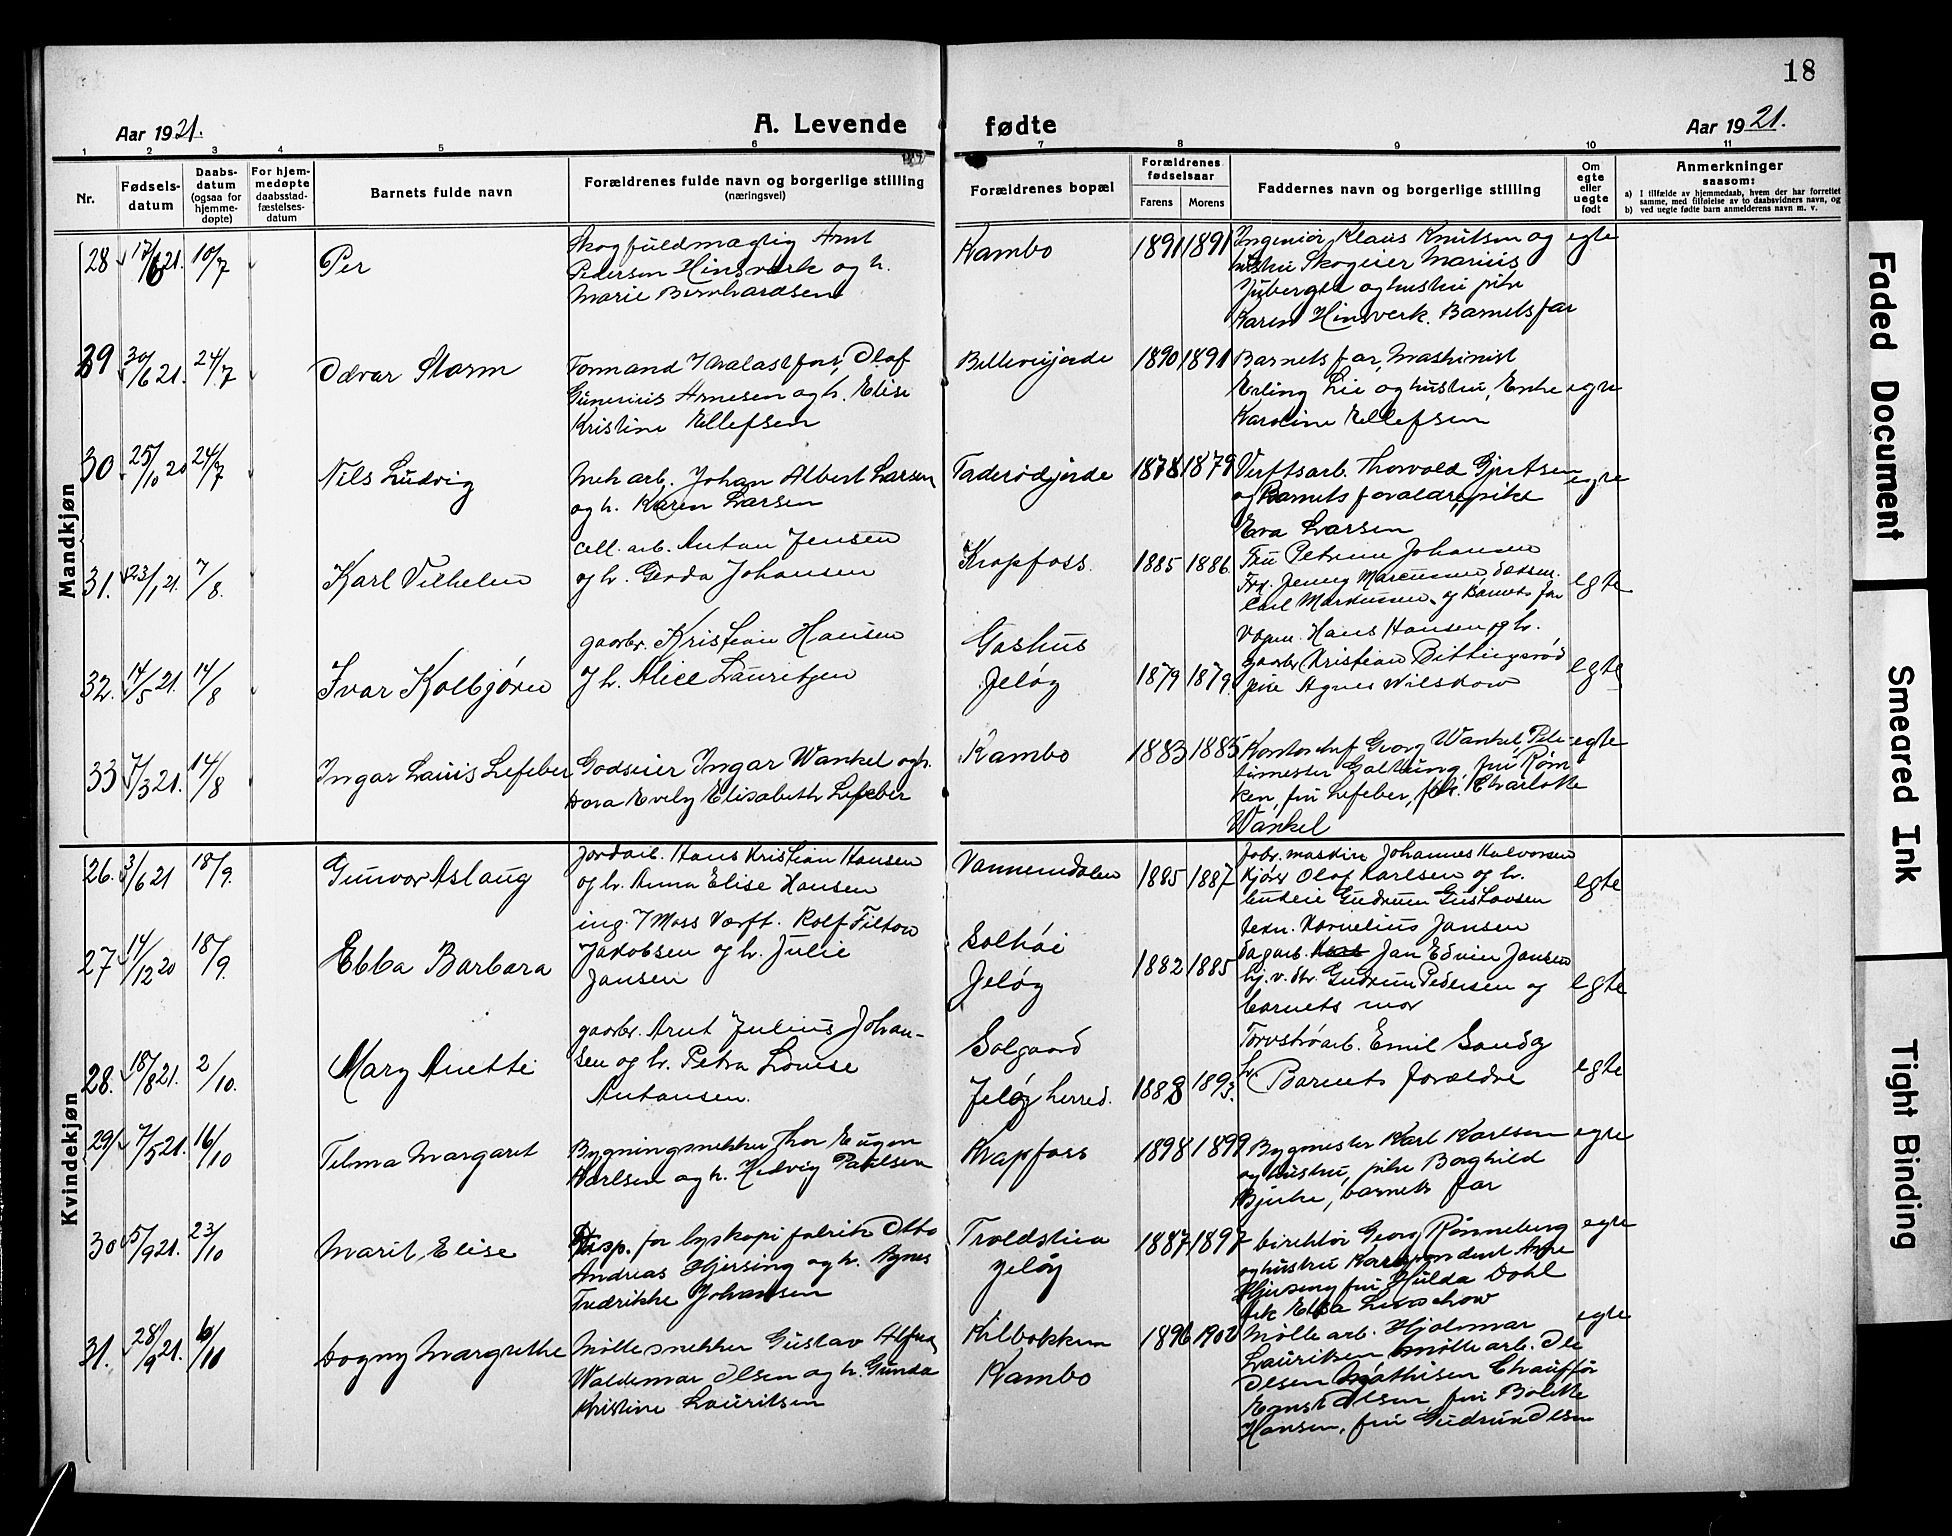 18
Aar 1921.
A. Levende fødte
Aar 1921.
1 2 3 4 5 6 7 8 9 10 11
Nr.
Fødsels-
datum
Daabs-
datum
(ogsaa for
hjemme-
døpte)
For hjem-
medøpte
daabsstad-
fæstelses-
datum
Barnets fulde navn
Forældrenes fulde navn og borgerlige stilling
(næringsvei)
Forældrenes bopæl
Forældrenes
fødselsaar
Farens Morens
Faddernes navn og borgerlige stilling
Om
egte
eller
uegte
født
Anmerkninger
saasom:
a) I tilfælde av hjemmedaab, hvem der har forrettet
samme, med tilføielse av to daabsvidners navn, og
b) ved uegte fødte barn anmelderens navn m. v.
Mandkjøn
28 17/6 21. 10/7
Per
Skogfuldmægtig Arnt
Pedersen Hinsverk og h.
Marie Bernhardsen
Kambo
1891 1891
Ingeniør Klaus Knutsen og
hustru Skogeier Marius
og hustru pike
Karen Hinsverk. Barnets far
egte
29 30/6 21. 24/7
Odvar Storm
Formand Olaf
Gunerius Arnesen og h. Elise
Kristine Ellefsen
Bellevuejorde
1890 1891
Barnets far, Maskinist
Erling Lie og hustru, Enke
Karoline Ellefsen
egte
30 25/10 20 24/7
Nils Ludvig
Mek arb. Johan Albert Larsen
og h. Karen Larsen
Taderødjorde
1878 1879
Verftsarb. Thorvald Gjertsen
og Barnets forældre, pike
Eva Larsen
egte
31. 23/1 21. 7/8.
Karl Vilhelm
cell. arb. Anton Jensen
og h. Gerda Johansen
Krapfoss.
1885 1886.
Fru Petrine Johansen
Frk. Jenny Marcussen
Carl Markussen og Barnets far
egte
32. 14/5 21. 14/8
Ivar Kolbjørn
gaarbr. Kristian Hansen
og h. Alice Lauritzen
Gashus
Jeløy
1879 1879.
Vogm. Hans Hansen og h.
gaarbr. Kristian Bittingsrød
pike Agnes Wilskow
egte
33 7/3 21. 14/8
Ingar Lauis Lefeber
Godseier Ingar Wankel og h.
Dora Evely Elisabeth Lefeber
Kambo
1883 1885
Kontorchef Georg Wankel,
Galtung, fru Røm-
ken, fru Lefeber, frk. Charlotte
Wankel
egte
Kvindekjøn
26. 3/6 21 18/9.
Gunvor Aslaug
Jordarb. Hans Kristian Hansen
og h. Anna Elise Hansen
Vannemdalen
1885 1887
Johannes Halvorsen
Kjører Olaf Karlsen og h.
budeie Gudrun Gustavsen
egte
27 14/12 20 18/9.
Ebba Barbara
ing. I Moss Værft. Rolf Filtow
Jakobsen og h. Julie
Jansen
Solhøi
Jeløy
1882 1885
tekn. Kornelius Jansen
dagarb. Jan Edvin Jansen
Gudrun Pedersen og
barnets mor
egte
28. 18/8 21. 2/10.
Mary Anette
gaarbr. Arnt Julius Johan-
sen og h. Petra Lovise
Antonsen.
Solgaard
Jeløy herred.
1888 1893.
Torvstrøarb. Emil Sand og
h. Barnets forældre
egte
29 7/5 21. 16/10
Telma Margaret
Bygningsnekker Thor Eugen
Karlsen og h. Hedvig Paulsen
Krapfoss
1898 1899
Bygmester Karl Karlsen
og hustru, pike Borghild
Bjerke, barnets far
egte
30 5/9 21. 23/10
Marit, Elise
Disp. for lyskopi fabrik Otto
Andreas Hjersing og h. Agnes
Fredrikke Johansen
Troldstua
Jeløy
1887 1897
Direktør Georg Rønneberg
og hustru Korrespondent Arne
Hjersing fru Hulda Dahl
frk Ebba
egte
31. 28/9 21. 6/11
Dagny Margrethe
Møllesnekker Gustav Alfred
Waldemar Olsen og h. Gunda
Kristine Lauritsen
Kilbakken
Kambo
1896 1902
Mølle arb. Hjalmar
Lauritsen mølle arb. Ole
Olsen Mathisen Chauffør
Ernst Olsen, fru Bolette
Hansen, fru Gudrun Olsen
egte
Faded Document
Smeared Ink
Tight Binding